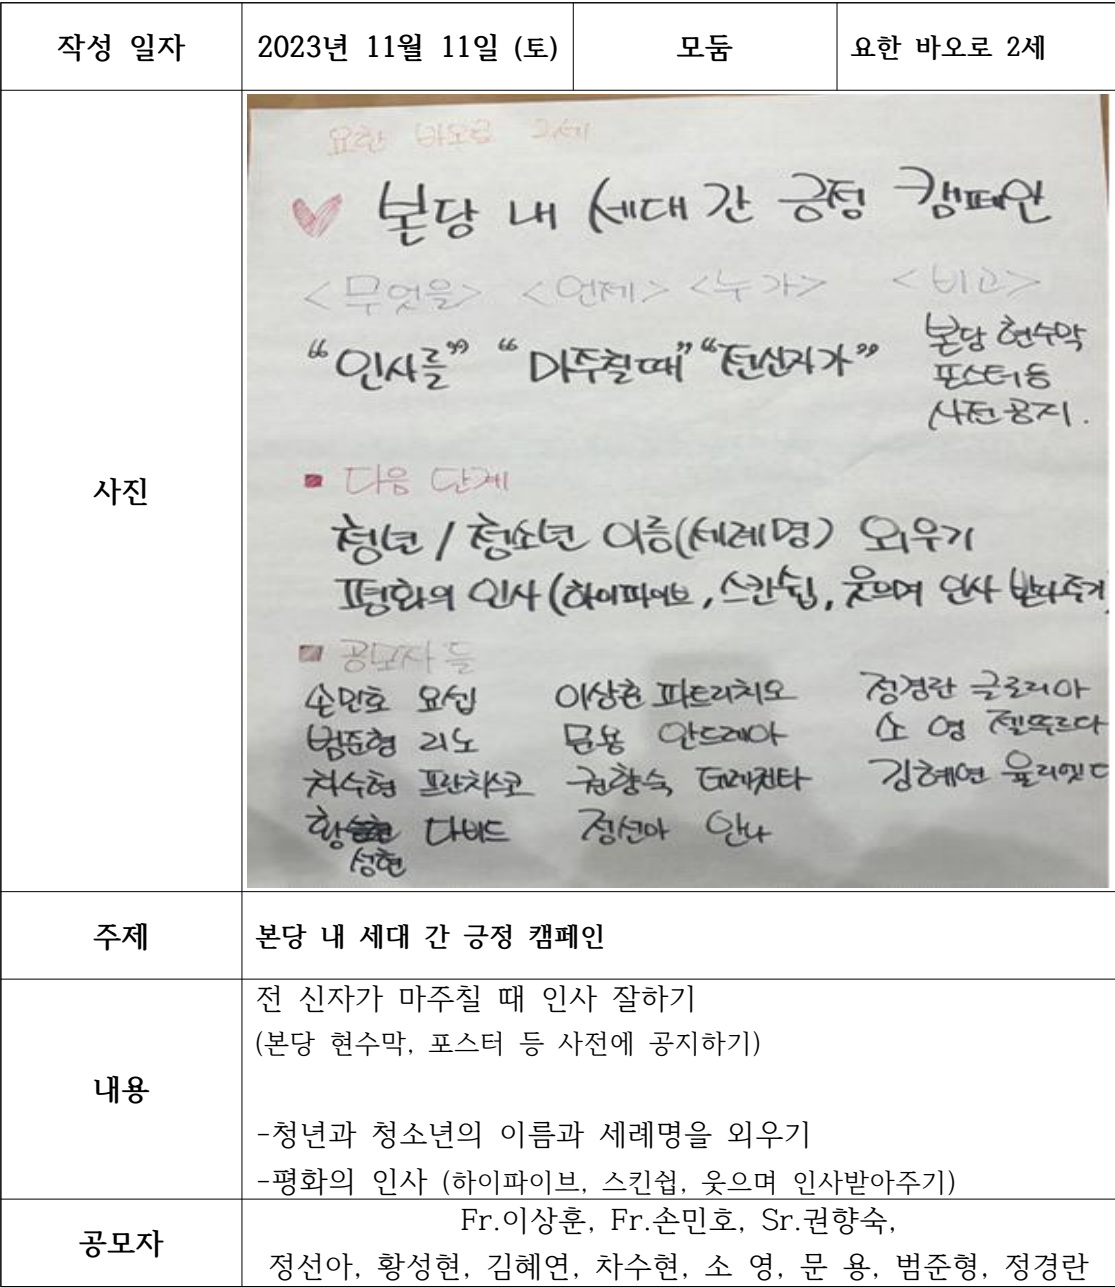 작성 일자 2023년 11월 11일 (토) 모둠 요한 바오로 2세
사진
요한 바오로 2세
본당 내 세대 간 긍정 캠페인
<무엇을> <언제> <누가> <비고>
“인사를” “마주칠 때” “전신자가”
본당 현수막
포스터 등
사전 공지.
■ 다음 단계
청년 / 청소년 이름(세례명) 외우기
평화의 인사 (하이파이브, 스킨쉽, 웃으며 인사 받아주기)
■ 공모자들
손민호 요셉 이상훈 파트리치오 정경란 글로리아
범준형 리노 문용 안드레아 소 영 젤뚜르다
차수현 프란치스코 권향숙 김혜연 율리엣다
황 다비드 정선아 안나
성현
주제 본당 내 세대 간 긍정 캠페인
내용
전 신자가 마주칠 때 인사 잘하기
(본당 현수막, 포스터 등 사전에 공지하기)
-청년과 청소년의 이름과 세례명을 외우기
-평화의 인사 (하이파이브, 스킨쉽, 웃으며 인사받아주기)
공모자
Fr.이상훈, Fr.손민호, Sr.권향숙,
정선아, 황성현, 김혜연, 차수현, 소 영, 문 용, 범준형, 정경란